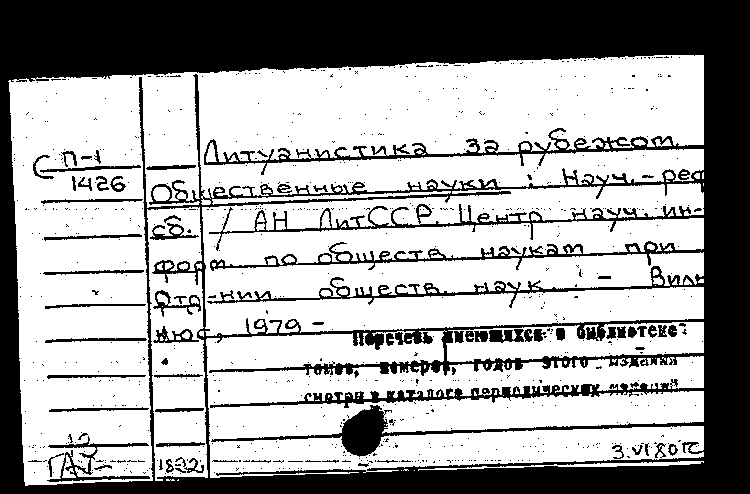 С П-1
1426
Литуанистика за рубежом.
Общественные науки : Науч.-реф
сб. / АН ЛитССР. Центр науч. ин-
форм. по обществ. наукам при
Отд-нии обществ. наук. - Виль
нюс, 1979 -
Перечень имеющихся в библиотеке
томов, номеров, годов этого издания
смотри в каталоге периодических изданий
1832
3.VI 80